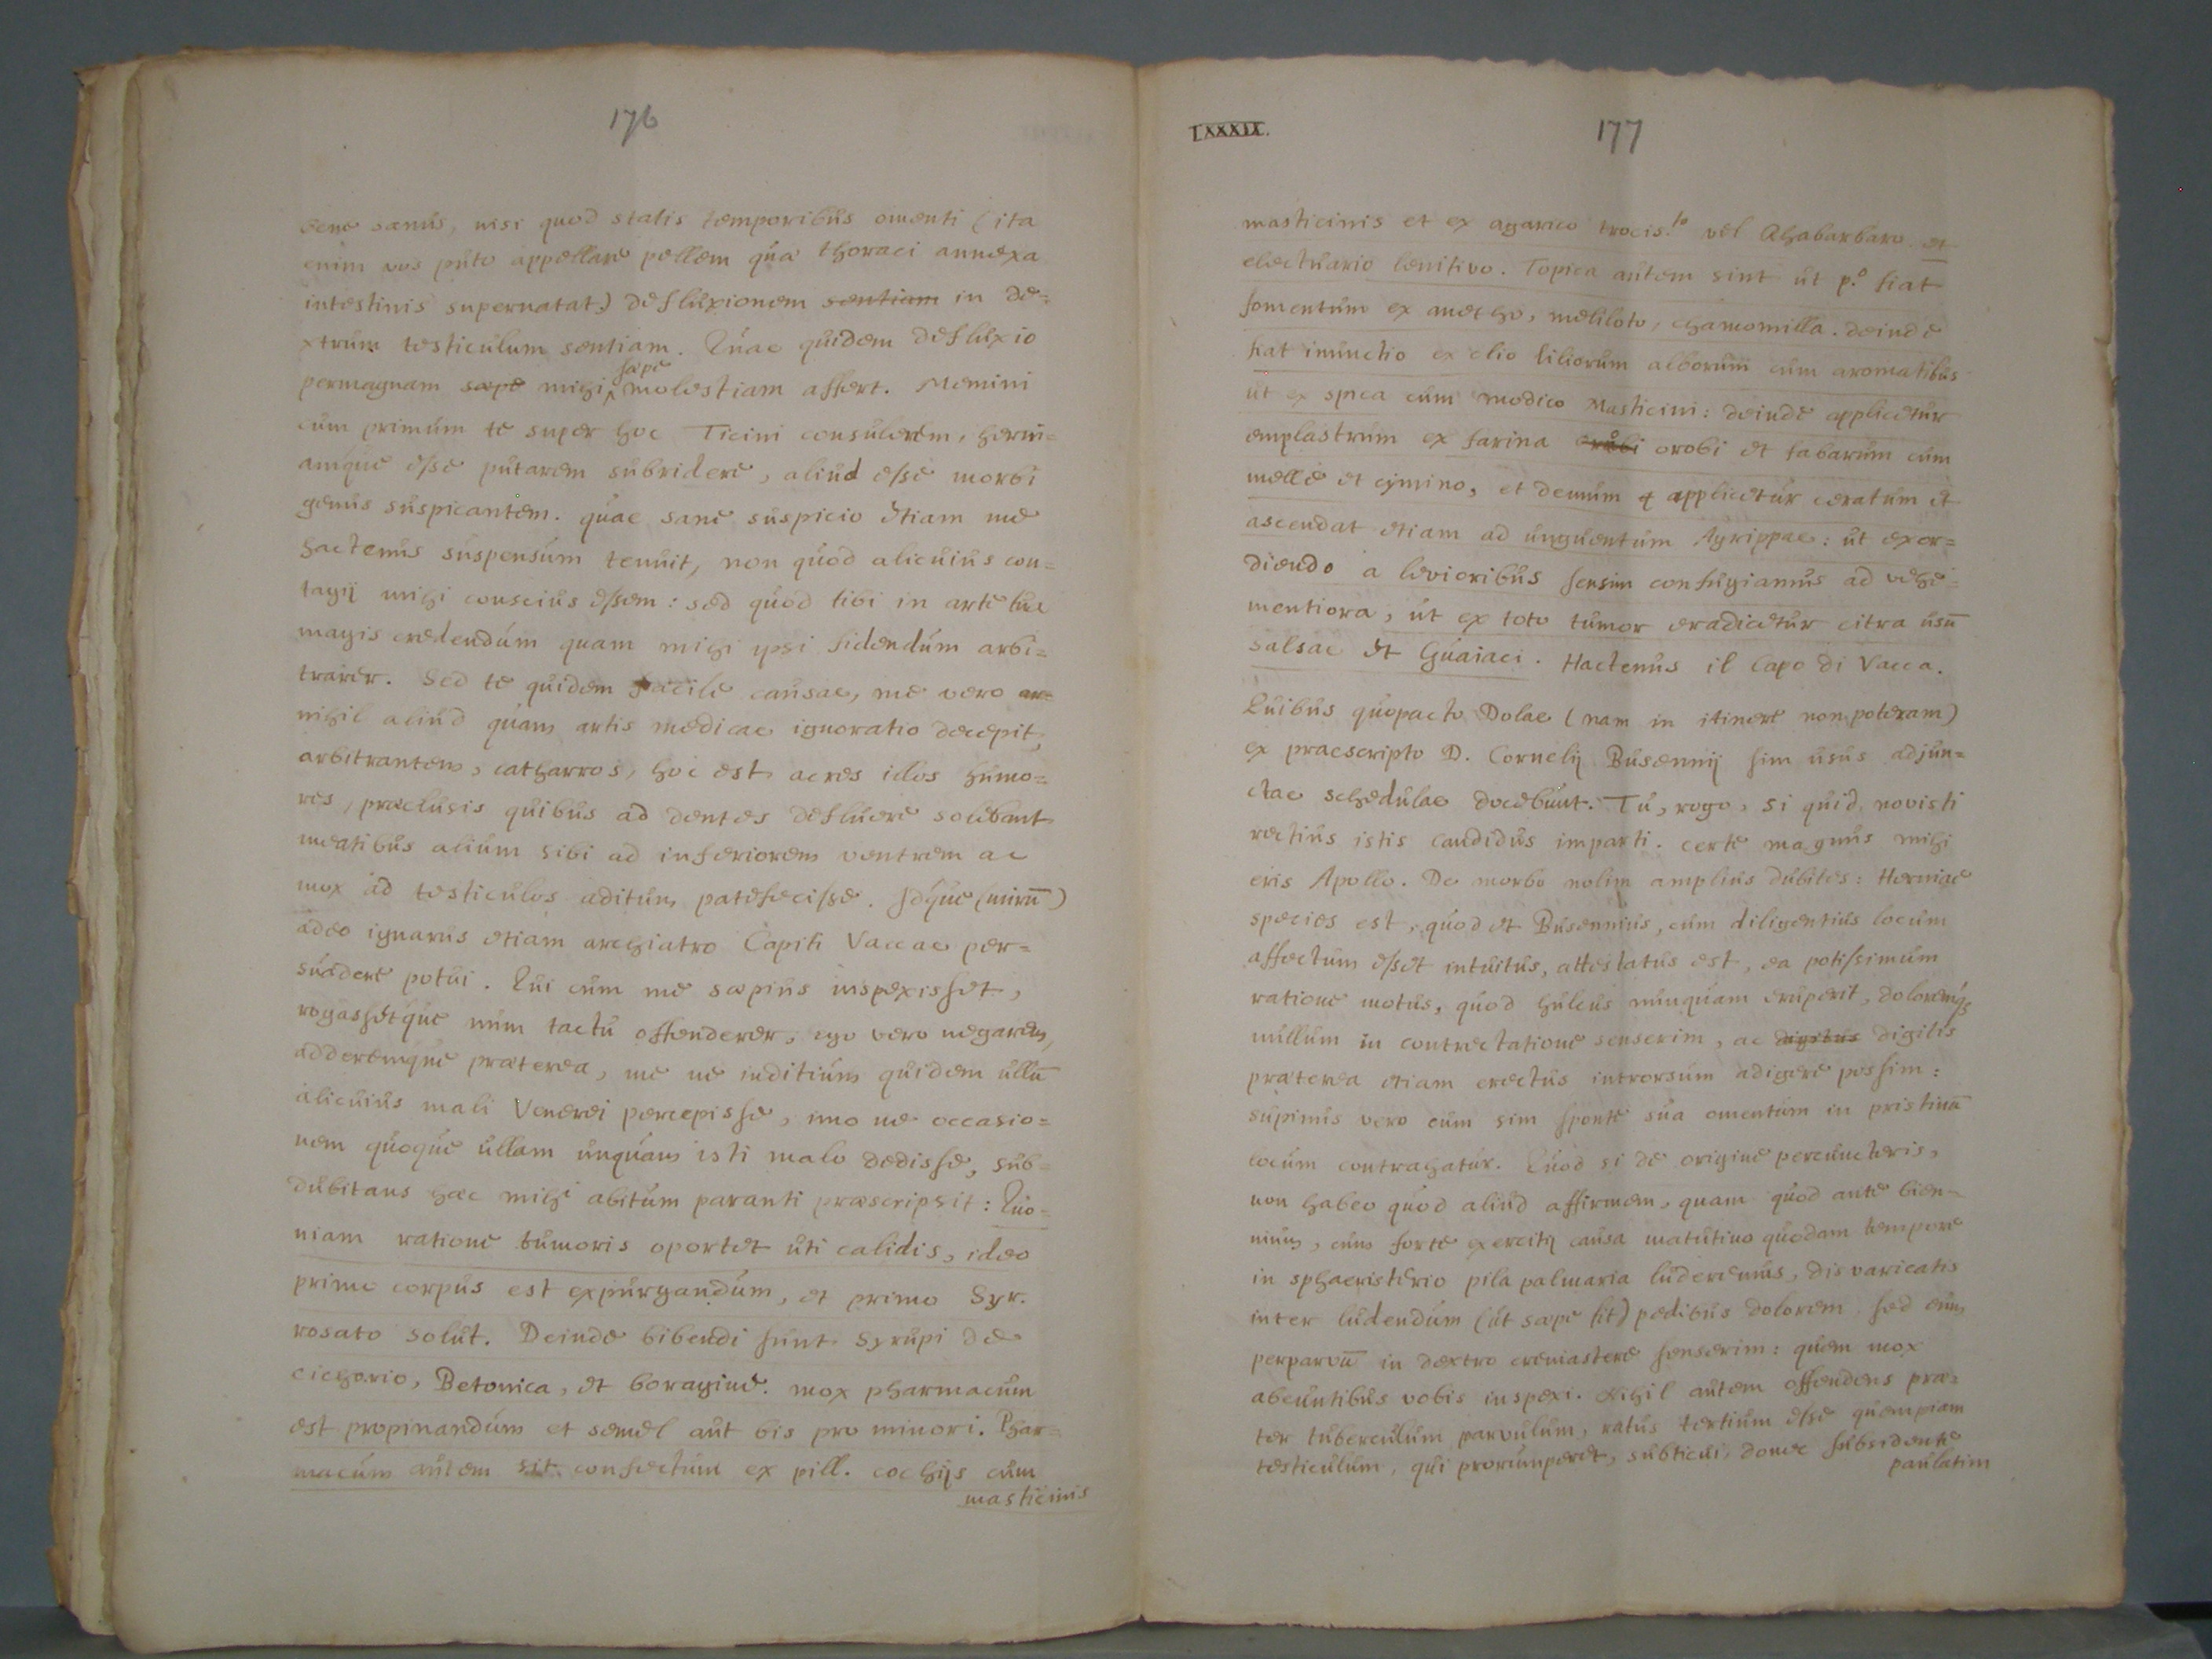 176
bene sanus, nisi quod statis temporibus omenti (ita
enim vos puto appellare pellem quae thoraci annexa
intestinis supernatat) defluxionem sentiam in de=
xtrum testiculum sentiam. Quae quidem defluxio
permagnam saepe mihi saepe molestiam affert. Memini
cum primum te super hoc Ticini consulerem, herni=
amque esse putarem subridere, aliud esse morbi
genus suspicantem. quae sane suspicio etiam me
hactenus suspensum tenuit, non quod alicuius con=
tagij mihi conscius essem: sed quod tibi in arte tua
magis credendum quam mihi ipsi fidendum arbi=
trarer. Sed te quidem facile causae, me vero
nihil aliud quam artis medicae ignoratio decepit,
arbitrantem, catharros, hoc est acres illos humo=
res, praeclusis quibus ad dentes defluere solebant
meatibus alium sibi ad inferiorem ventrem ac
mox ad testiculos aditum patefecisse. Idque (mirū)
adeo ignarus etiam archiatro Capiti Vaccae per=
suadere potui. Qui cum me saepius inspexisset,
rogassetque num tactu offenderer, ego vero negarem,
adderemque praeterea, me ne inditium quidem ullū
alicuius mali Venerei percepisse, imo ne occasio=
nem quoque ullam unquam isti malo dedisse, sub=
dubitans haec mihi abitum paranti praescripsit: Quo=
niam ratione tumoris oportet uti calidis, ideo
primo corpus est expurgandum, et primo Syr.
rosato solut. Deinde bibendi sunt syrupi de
cichorio, Betonica, et boragine. mox pharmacum
est propinandum et semel aut bis pro minori. Phar=
macum autem sit confectum ex pill. cochijs cum
masticinis
LXXXIX.
177
masticinis et ex agarico trocis.to vel Rhabarbaro et
electuario lenitivo. Topica autem sint ut p.o fiat
fomentum ex anetho, meliloto, chamomilla. deinde
fiat inunctio ex olio liliorum alborum cum aromatibus
ut ex spica cum modico Masticini: deinde applicetur
emplastrum ex farina orobi et fabarum cum
melle et cymino, et demum applicetur ceratum et
ascendat etiam ad unguentum Agrippae: ut exor=
diendo a levioribus sensim confugiamus ad vehe=
mentiora, ut ex toto tumor eradicetur citra usū
salsae et Guaiaci. Hactenus il Capo di Vacca.
Quibus quopacto Dolae (nam in itinere non poteram)
ex praescripto D. Cornelij Busennij sim usus adjun=
ctae schedulae docebunt. Tu, rogo, si quid novisti
rectius istis candidus imparti. certe magnus mihi
eris Apollo. De morbo nolim amplius dubites: Herniae
species est, quod et Busennius, cum diligentius locum
affectum esset intuitus, attestatus est, ea potissimum
ratione motus, quod hulcus nunquam eruperit, doloremqȝ
nullum in contrectatione senserim, ac digitus digitis
praeterea etiam erectus introrsum adigere possim:
supinus vero cum sim sponte sua omentum in pristinū
locum contrahatur. Quod si de origine percuncteris,
non habeo quod aliud affirmem, quam quod ante bien=
nium, cum forte exercitij causa matutino quodam tempore
in sphaeristerio pila palmaria luderemus, disvaricatis
inter ludendum (ut saepe fit) pedibus dolorem sed eum
perparvū in dextro cremastere senserim: quem mox
abeuntibus vobis inspexi. Nihil autem offendens prae=
ter tuberculum parvulum, ratus tertium esse quempiam
testiculum, qui prorumperet, subticui, donec subsidente
paulatim